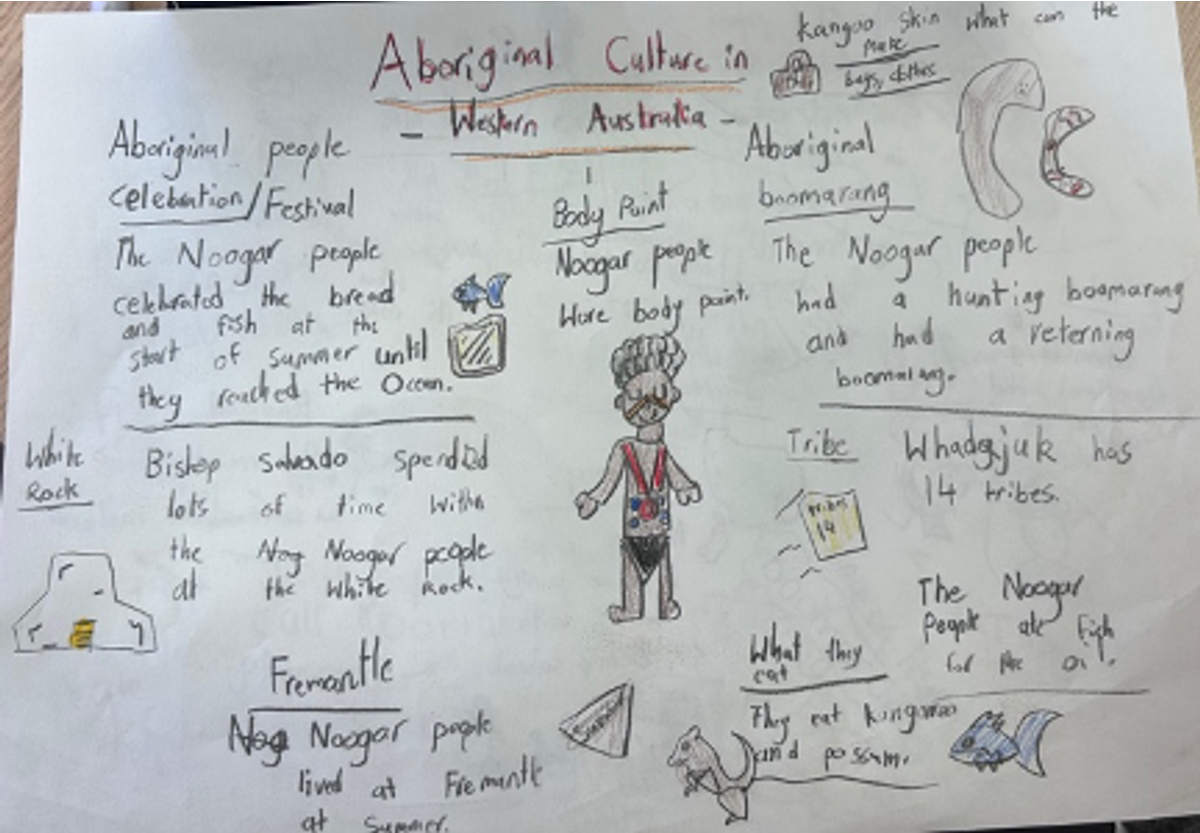 Aboriginal Culture in
- Western Australia -
kangoo skin what can the
Make
bags, clothes
Aboriginal people
celebration/Festival
The Noogar people
celebrated the bread
and fish at the
start of summer until
they reached the Ocean.
Body Paint
Noogar people
Wore body paint.
Aboriginal
boomarang
The Noogar people
had a hunting boomarang
and had a reterning
boomarang.
White
Rock
Bishop Salvado spended
lots of time with
the Nog Noogar people
at the White Rock.
Tribe
Whadgjuk has
14 tribes.
tribes
14
Fremantle
Nog Noogar people
lived at Fremantle
at Summer.
What they
eat
They eat kungaroo
and possum.
The Noogar
People ate Fish
for the oil.